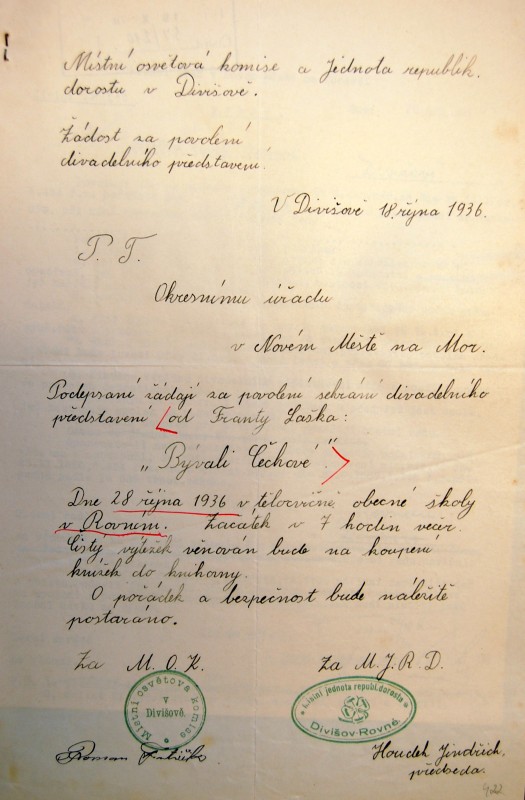 Místní osvětová komise a Jednota republik.
dorostu v Divišově.
Žádost za povolení
divadelního představení.
V Divišově 18. října 1936.
P. T.
Okresnímu úřadu
v Novém Městě na Mor.
Podepsaní žádají za povolení sehrání divadelního
představení od Franty Saška:
„Bývali Čechové."
Dne 28 října 1936 v tělocvičně obecné školy
v Rovném. Začátek v 7 hodin večer.
Čistý výtěžek věnován bude na koupení
knížek do knihovny.
O pořádek a bezpečnost bude náležitě
postaráno.
Za M. O. K.
Za M. J. R. D.
Místní osvětová komise
v
Divišově.
Místní jednota republ. dorostu
Divišov-Rovné
Roman
Houdek Jindřich,
předseda.
922